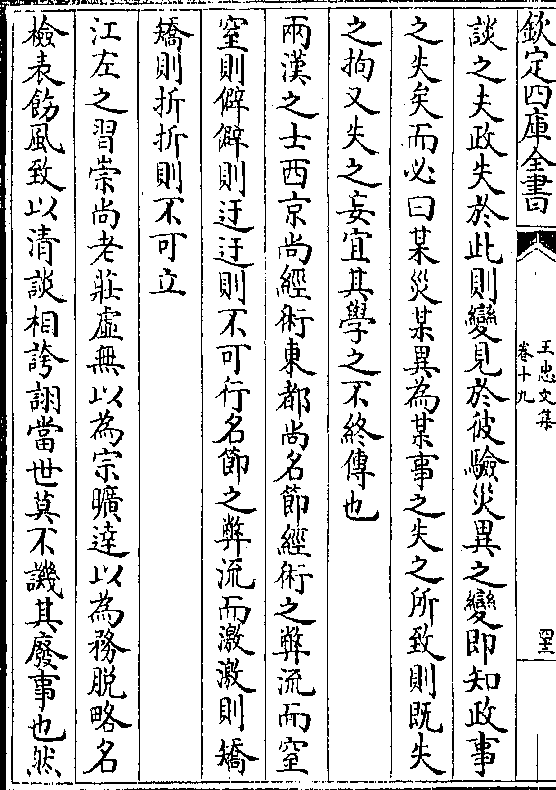 欽定四庫全書
王忠文集
卷十九
談之夫政失於此則變見於彼驗災異之變即知政事
之失矣而必曰某災某異為某事之失之所致則既失
之拘又失之妄宜其學之不終傳也
兩漢之士西京尚經術東都尚名節經術之弊流而窒
窒則僻僻則迂迂則不可行名節之弊流而激激則矯
矯則折折則不可立
江左之習崇尚老莊虛無以為宗曠達以為務脱略名
檢表飭風致以清談相誇詡當世莫不譏其廢事也然